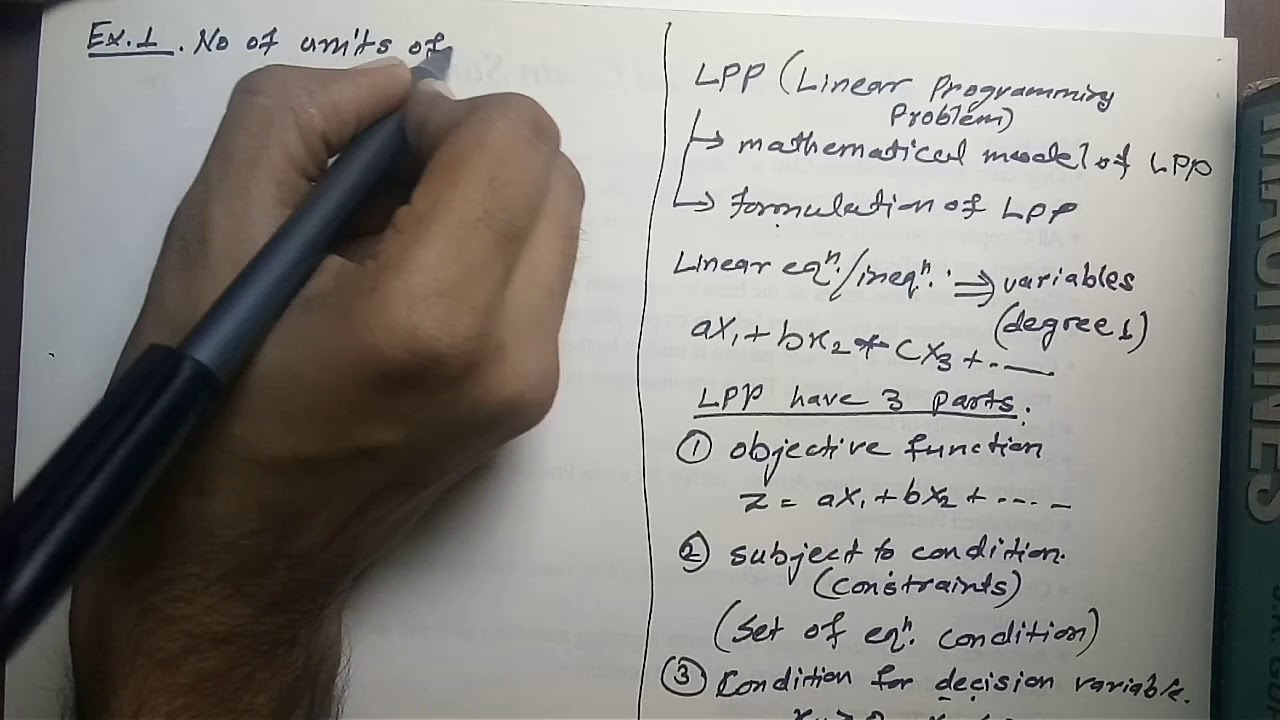 Ex.1. No of units of
LPP (Linear Programming
Problem)
↳ mathematical model of LPP
↳ formulation of LPP
Linear eqⁿ./ineqⁿ. ⇒ variables
(degree 1)
ax₁ + bx₂ + cx₃ + ..—
LPP have 3 parts.
① objective function
z = ax₁ + bx₂ + ---- -
② subject to condition.
(constraints)
(Set of eqⁿ. condition)
③ Condition for decision variable.
MACHINES